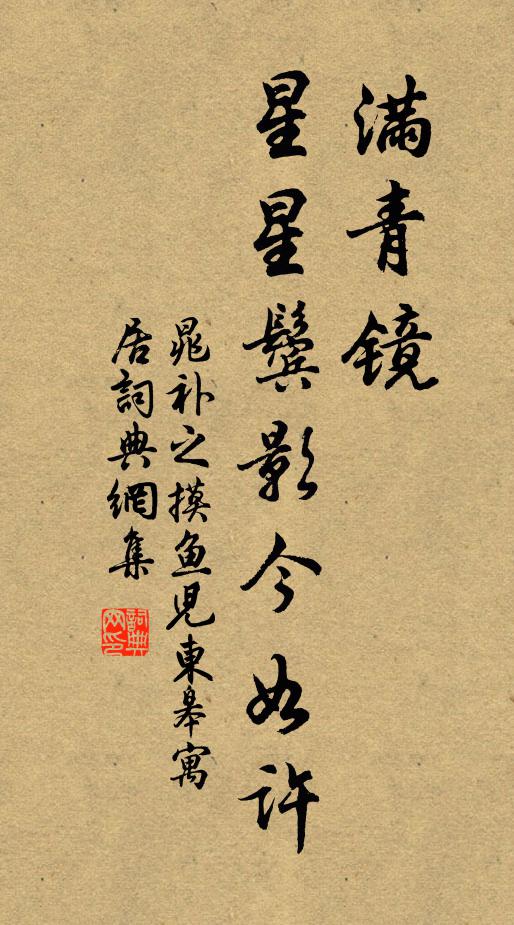 满青镜
星星鬓影今如许
晁补之摸鱼児東皋寓
居詞典網集
詞典
网印